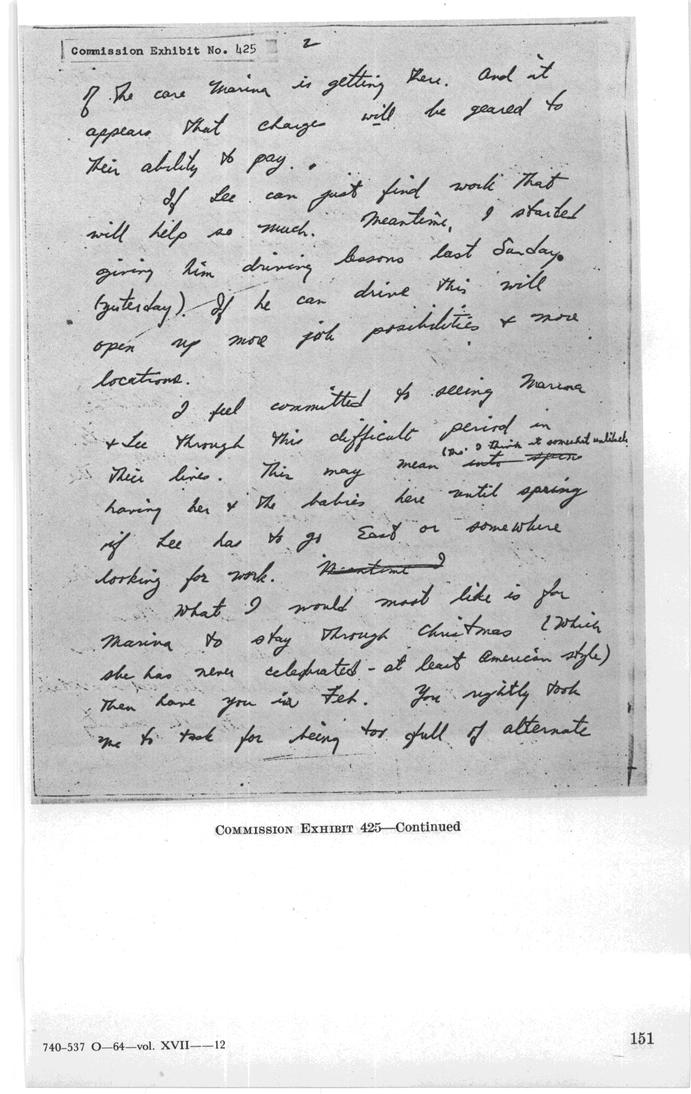 Commission Exhibit No. 425
2
of the care Marina is getting there. And it
appears that charges will be geared to
their ability to pay.
If Lee can just find work that
will help so much. Meantime, I started
giving him driving lessons last Sunday
(yesterday). If he can drive this will
open up more job posibilities & more
locations.
I feel committed to seeing Marina
& Lee through this difficult period in
(tho' I think it somewhat unlikely)
their lives. This may mean into spri
having her & the babies here until spring
if Lee has to go East or somewhere
looking for work. Meantime I
What I would most like is for
Marina to stay through Christmas (which
she has never celebrated - at least American style)
then have you in Feb. You rightly took
me to task for being too full of alternate
COMMISSION EXHIBIT 425—Continued
740-537 O—64—vol. XVII——12
151